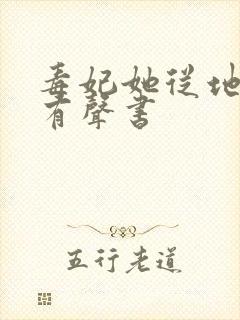 毒妃她從地
有聲書
五行老道